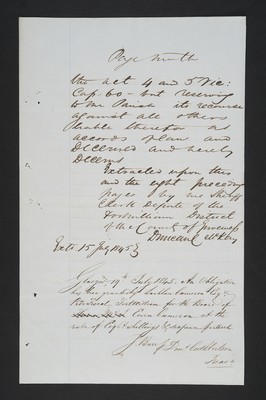 Page ninth
the act 4 and 5 Vic:
Cap. 60 - but reserving
to the Parish its recourse
against all others
liable therefor as
accords of law and
Decerned and hereby
Decerns
Extracted upon this
and the eight preceding
pages by me Sheriff
Clerk Depute of the
Fortwilliam District
of the County of Inverness
Duncan
Exte. 15 July 1845
19th July 1845. An Obligation
has been granted by Cameron Esq
for the Board of
Cameron at the
rate of Eight shillings &